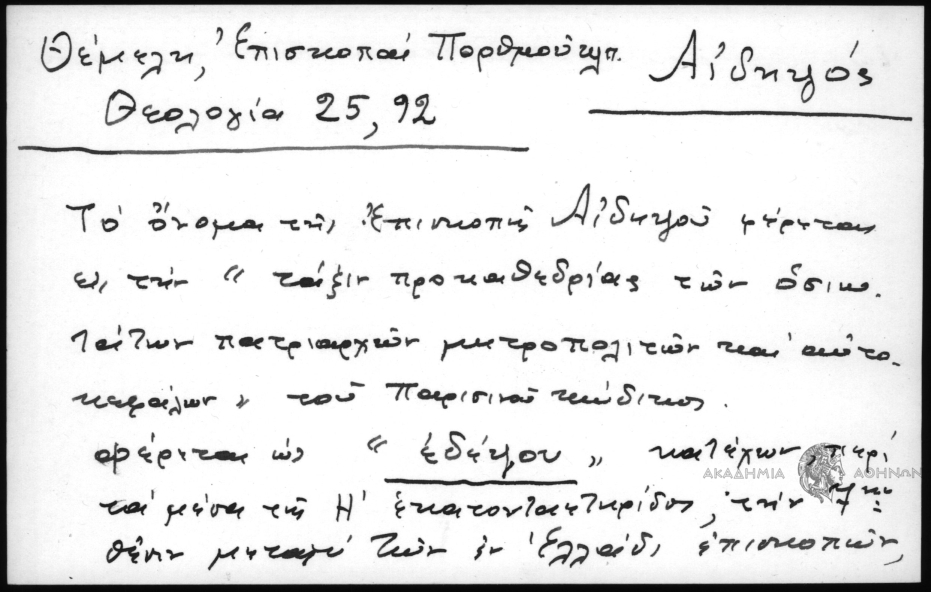 Θέμελη, Ἐπισκοπαί Πορθμοῦ κλπ.
Αἰδηψός
Θεολογία 25, 92
Τό ὄνομα τῆς Ἐπισκοπῆς Αἰδηψοῦ φέρεται
εἰς τήν “ τάξιν προκαθεδρίας τῶν ὁσιω-
τάτων πατριαρχῶν μητροπολιτῶν καί αὐτο-
κεφάλων „ τοῦ Παρισινοῦ κώδικος.
Φέρεται ὡς “ ἐδέψου „ κατέχων, περί
ΑΚΑΔΗΜΙΑ ΑΘΗΝΩΝ
τά μέσα τῆς Η' ἑκατονταετηρίδος, τήν
θέσιν μεταξύ τῶν ἐν Ἑλλάδι ἐπισκοπῶν,